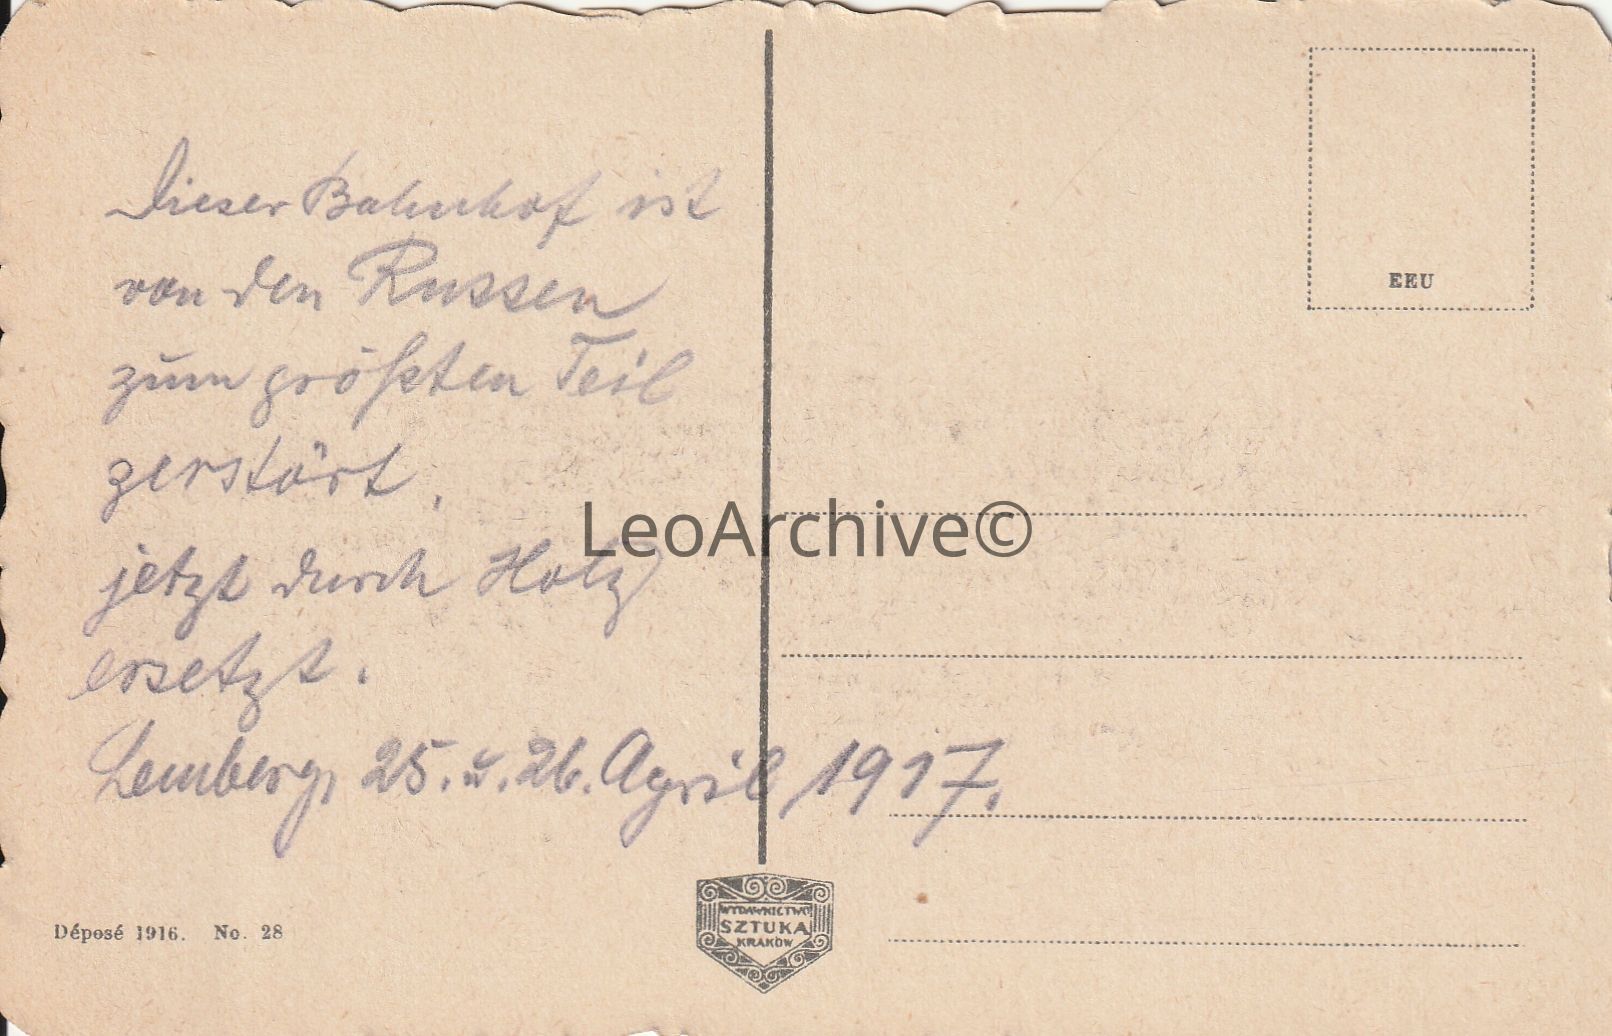 Dieser Bahnhof ist
von den Russen
zum größten Teil
zerstört,
jetzt durch Holz
ersetzt.
Lemberg, 25. u. 26. April 1917.
EEU
LeoArchive©
WYDAWNICTWO
SZTUKA
KRAKÓW
Déposé 1916. No. 28